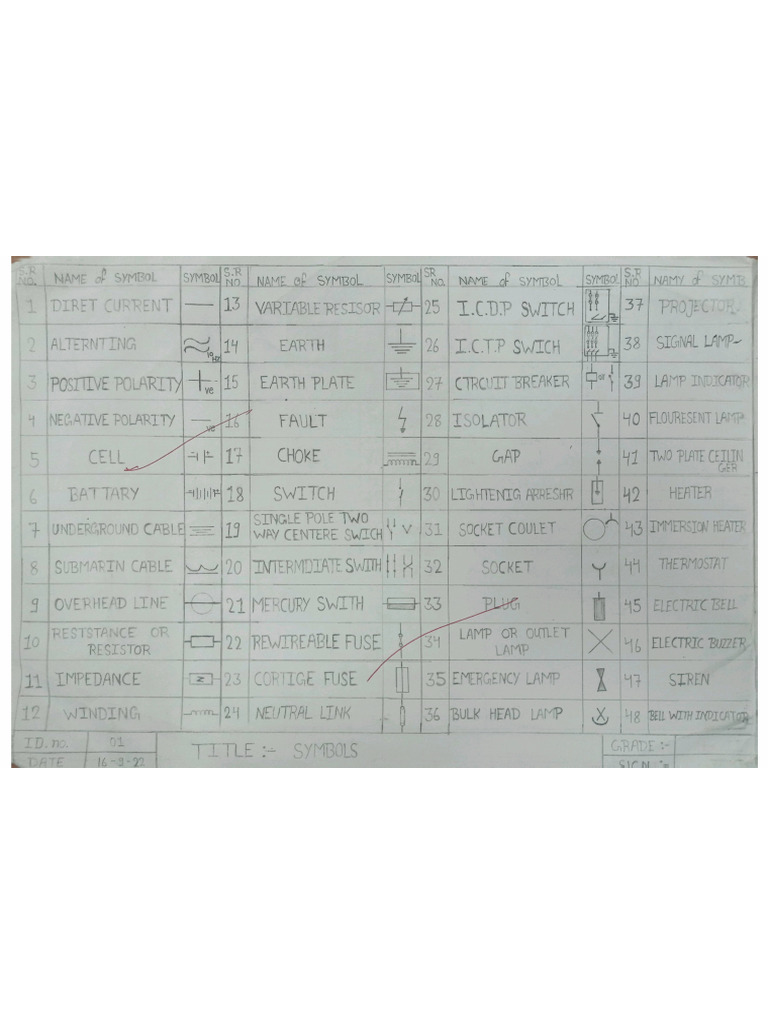 S.R NO. NAME of SYMBOL SYMBOL S.R NO NAME of SYMBOL SYMBOL SR NO. NAME of SYMBOL SYMBOL S.R NO NAMY of SYMB
1 DIRET CURRENT 13 VARIABLE RESISOR 25 I.C.D.P SWITCH 37 PROJECTOR
2 ALTERNTING 14 EARTH 26 I.C.T.P SWICH 38 SIGNAL LAMP
3 POSITIVE POLARITY +ve 15 EARTH PLATE 27 CTRCUIT BREAKER OR 39 LAMP INDICATOR
4 NEGATIVE POLARITY -ve 16 FAULT 28 ISOLATOR 40 FLOURESENT LAMP
5 CELL 17 CHOKE 29 GAP 41 TWO PLATE CEILIN
GER
6 BATTARY 18 SWITCH 30 LIGHTENIG ARRESHR 42 HEATER
7 UNDERGROUND CABLE 19 SINGLE POLE TWO
WAY CENTERE SWICH 31 SOCKET COULET 43 IMMERSION HEATER
8 SUBMARIN CABLE 20 INTERMDIATE SWITH 32 SOCKET 44 THERMOSTAT
9 OVERHEAD LINE 21 MERCURY SWITH 33 PLUG 45 ELECTRIC BELL
10 RESTSTANCE OR
RESISTOR 22 REWIREABLE FUSE 34 LAMP OR OUTLET
LAMP 46 ELECTRIC BUZZER
11 IMPEDANCE Z 23 CORTIGE FUSE 35 EMERGENCY LAMP 47 SIREN
12 WINDING 24 NEUTRAL LINK 36 BULK HEAD LAMP 48 BELL WITH INDICATOR
ID. no. 01 TITLE :- SYMBOLS GRADE :-
DATE 16-9-22 SIGN :-